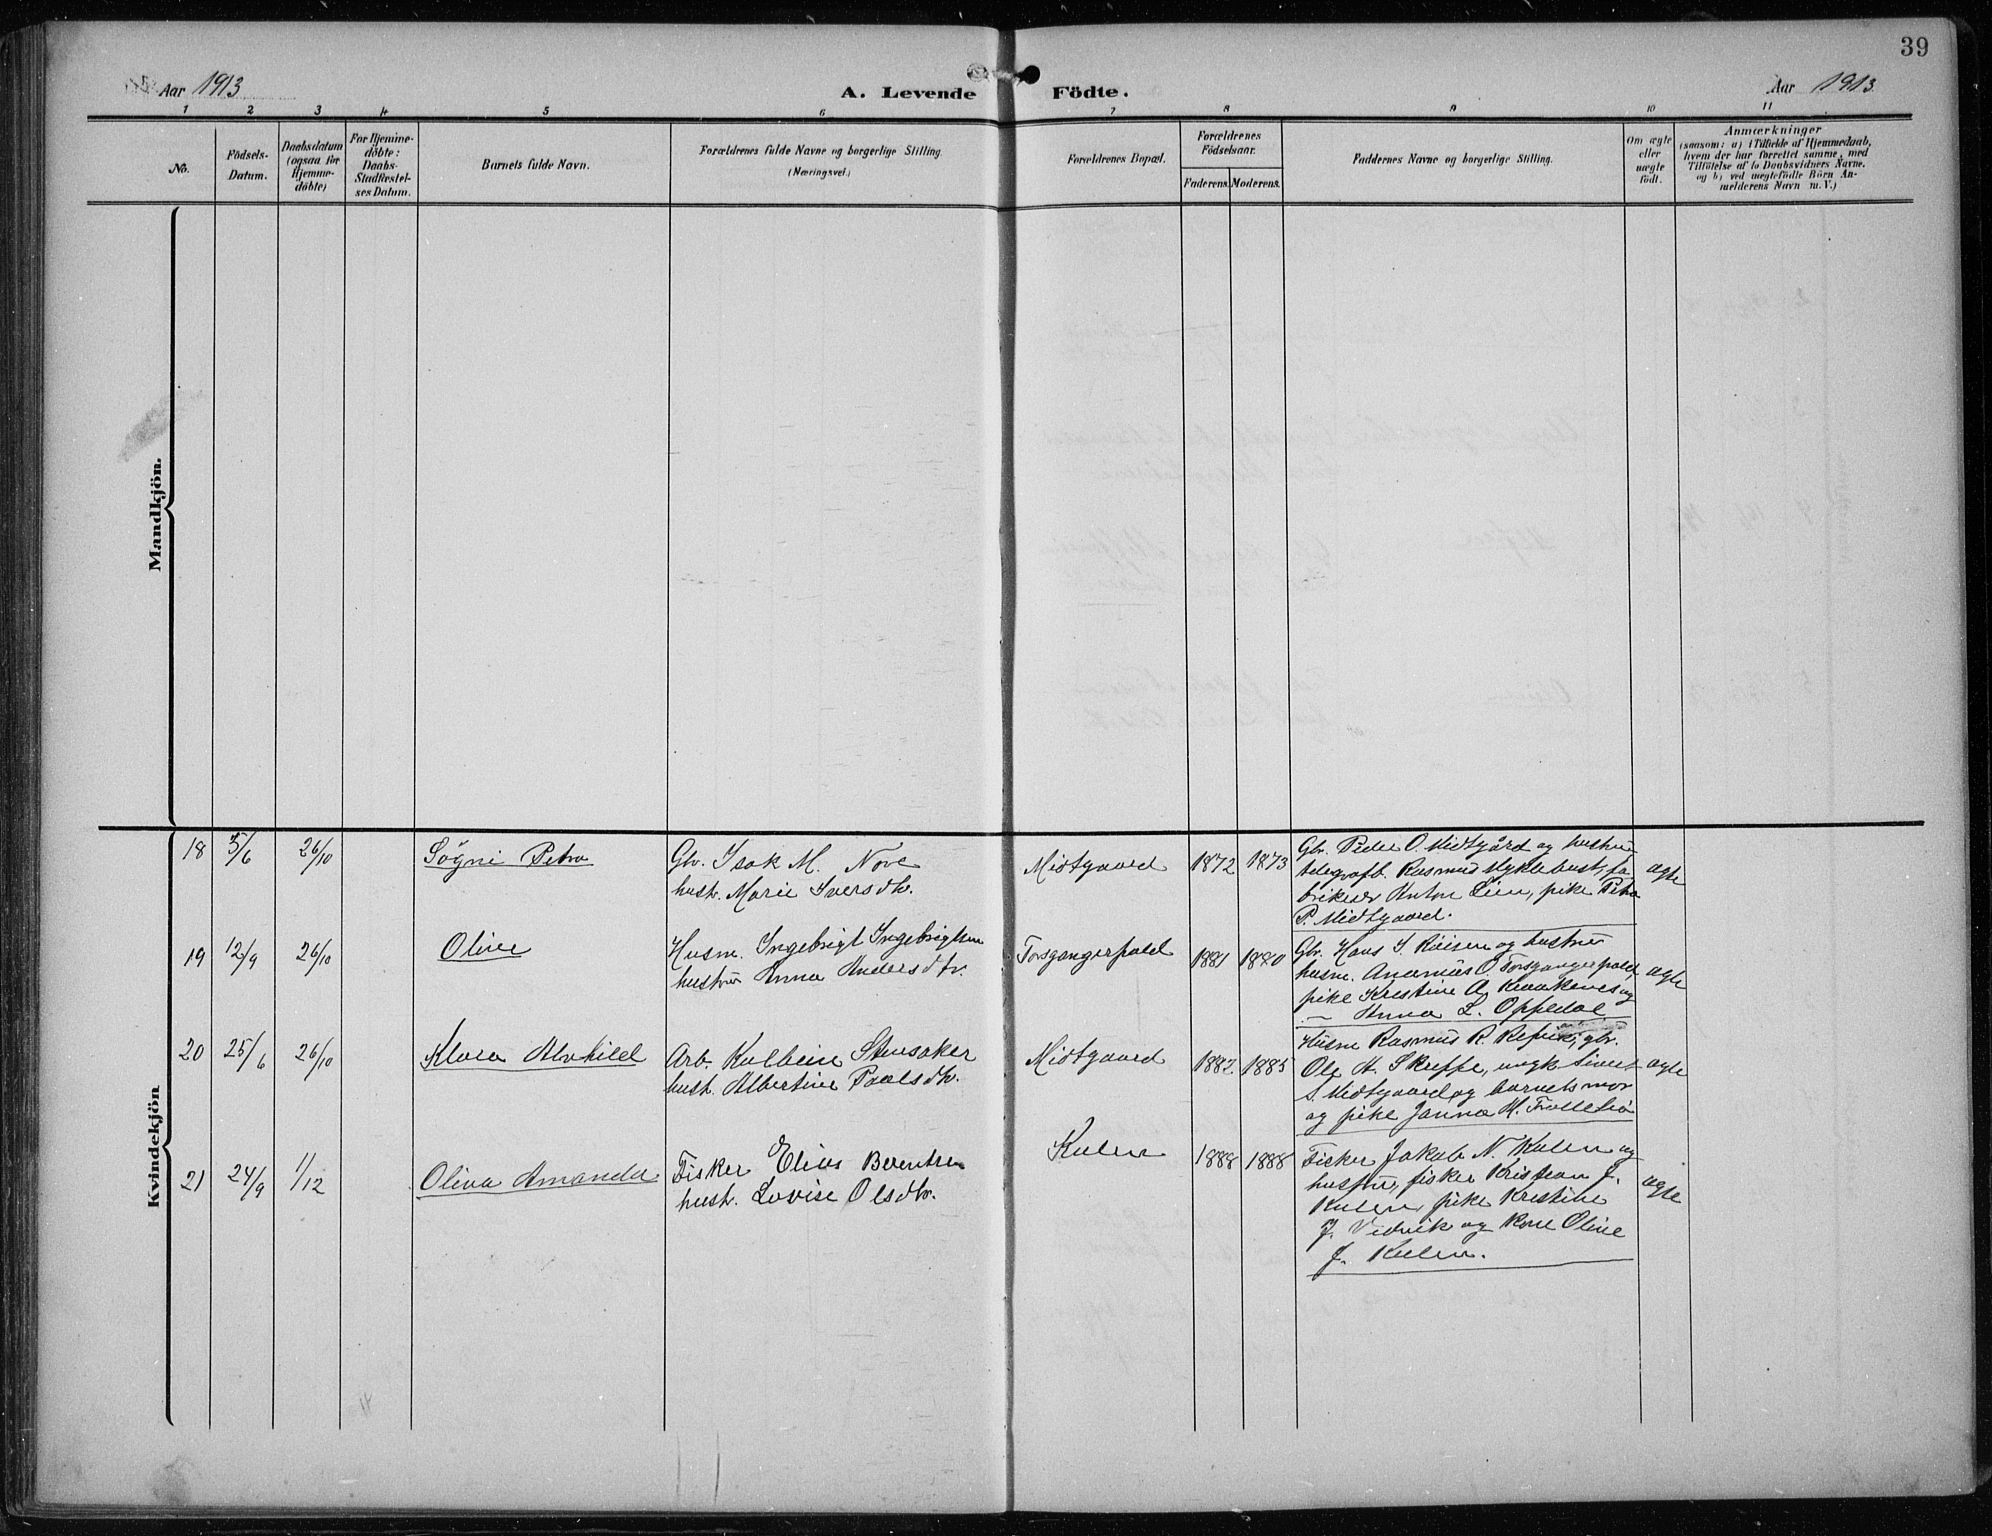 39
Aar 1913
A. Levende Födte.
Aar 1913
1 2 3 4 5 6 7 8 9 10 11
No.
Födsels-
Datum.
Daabsdatum
(ogsaa for
Hjemme-
döbte)
For Hjemme-
döbte:
Daabs-
Stadfæstel-
ses Datum.
Barnets fulde Navn.
Forældrenes fulde Navne og borgerlige Stilling.
(Næringsvei.)
Forældrenes Bopæl.
Forældrenes
Födselsaar.
Faderens. Moderens.
Faddernes Navne og borgerlige Stilling.
Om ægte
eller
uægte
födt.
Anmærkninger
(saasom: a) i Tilfælde af Hjemmedaab,
hvem der har forrettet samme, med
Tilföielse af to Daabsvidners Navne.
og b) ved uægtefödte Börn An-
melderens Navn m. V.)
Mandkjön.
Kvindekjön
18 5/6 26/10 Søgni Petra
Gbr. Isak M. Nore
hust. Marie Iversdtr.
Midtgaard 1872 1873
Gbr. Peder O. Midtgård og hustru
telegrafb. Rasmus Myklebust, fa
brikeier Anton Lien, pike Petra
P. Midtgaard.
ægte
19 12/9 26/10 Olive
Husm. Ingebrigt Ingebrigtsen
hustru Anna Andersdtr.
Torsgangerpald 1881 1880
Gbr. Hans I. Röisen og hustru
husm. Anamias O. Torsgangerpald
pike Kristine A. Kraakenes og
— Anna L. Oppedal
ægte
20 25/6 26/10 Klara Alvhild
Arb. Kolbein Stensaker
hust. Albertine Paulsdtr.
Midtgaard 1882 1885
Husm Rasmus R. Refvik, gbr.
Ole H. Skreppe, ungk. Sivert
S. Midtgaard og barnets mor
og pike Janna M. Trollebö
ægte
21 24/9 1/12 Oliva Amanda
Fisker Elias Berntsen
hust. Lovise Olsdtr.
Kulen 1888 1888
Fisker Jakob N. Kulen og
hustru, fisker Kristian J.
Kulen, pike Kristine
J. Vedvik og kone Oline
J. Kulen.
ægte